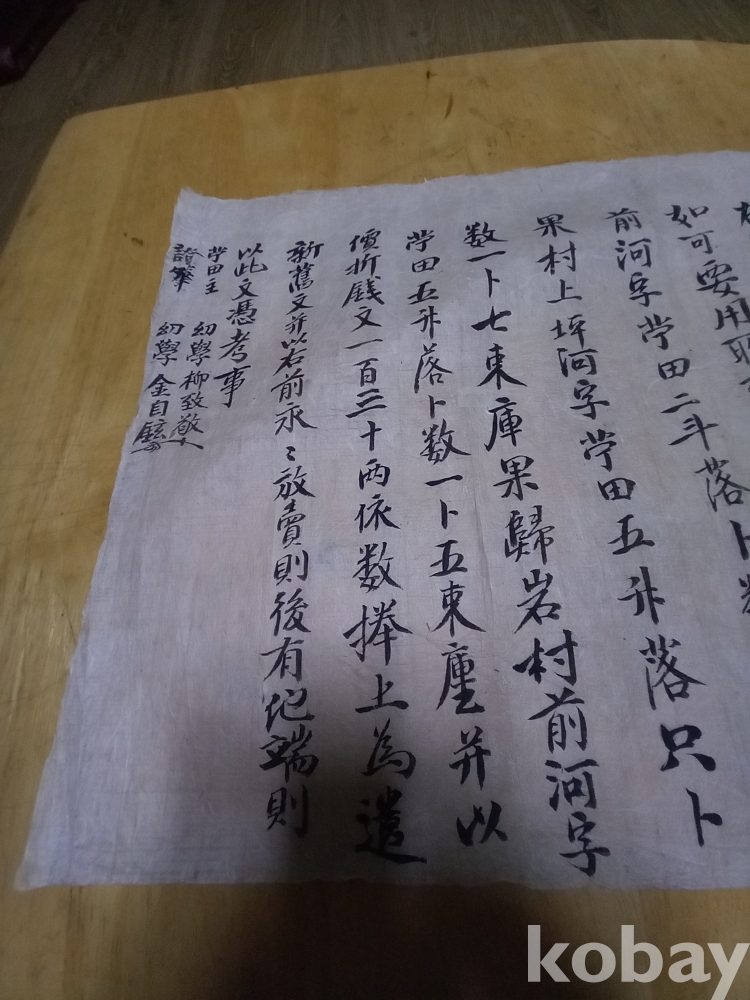 如可要用耶
前河字苧田二斗落卜数
果村上坪河字苧田五升落只卜
数一卜七束庫果歸岩村前河字
苧田五升落卜数一卜五束庫并以
價折錢文一百三十両依数捧上為遣
新舊文并以右前永〻放賣則後有他端則
以此文憑考事
苧田主 幼學柳致敬
證筆 幼學 金自鉉
kobay